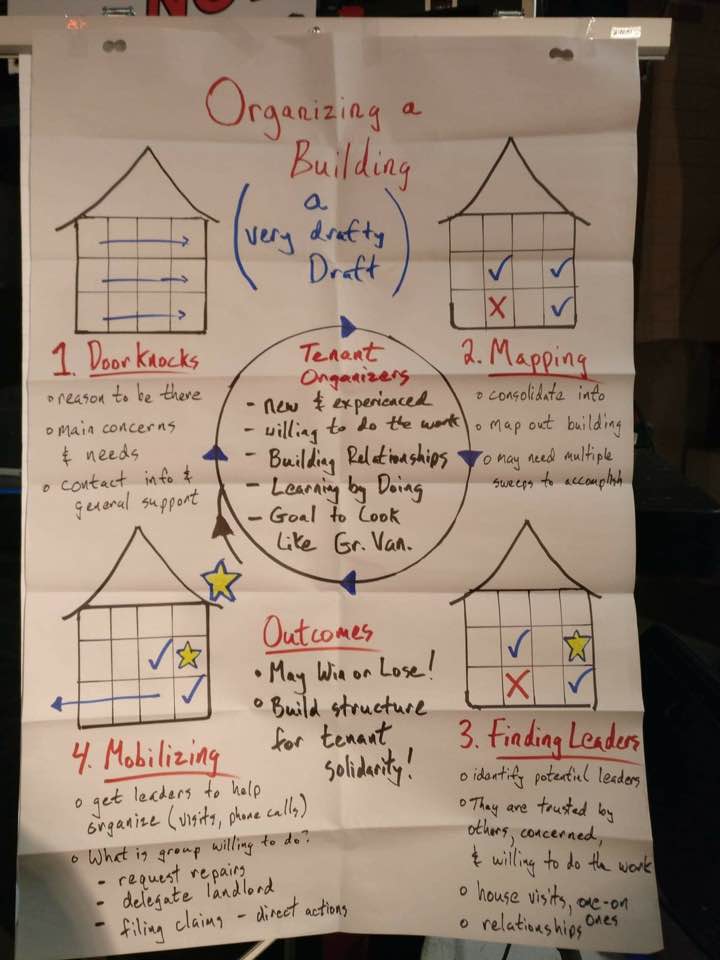 NO
Organizing a
Building
(a
very drafty
Draft)
1. Doorknocks
o reason to be there
o main concerns
& needs
o contact info &
general support
Tenant
Organizers
- new & experienced
- willing to do the work
- Building Relationships
- Learning by Doing
- Goal to Look
Like Gr. Van.
2. Mapping
o consolidate info
o map out building
o may need multiple
sweeps to accomplish
Outcomes
• May Win or Lose!
• Build structure
for tenant
solidarity!
3. Finding Leaders
o identify potential leaders
o They are trusted by
others, concerned,
& willing to do the work
o house visits, one-on
ones
o relationships
4. Mobilizing
o get leaders to help
organize (visits, phone calls)
o What is group willing to do?
- request repairs
- delegate landlord
- filing claims - direct actions